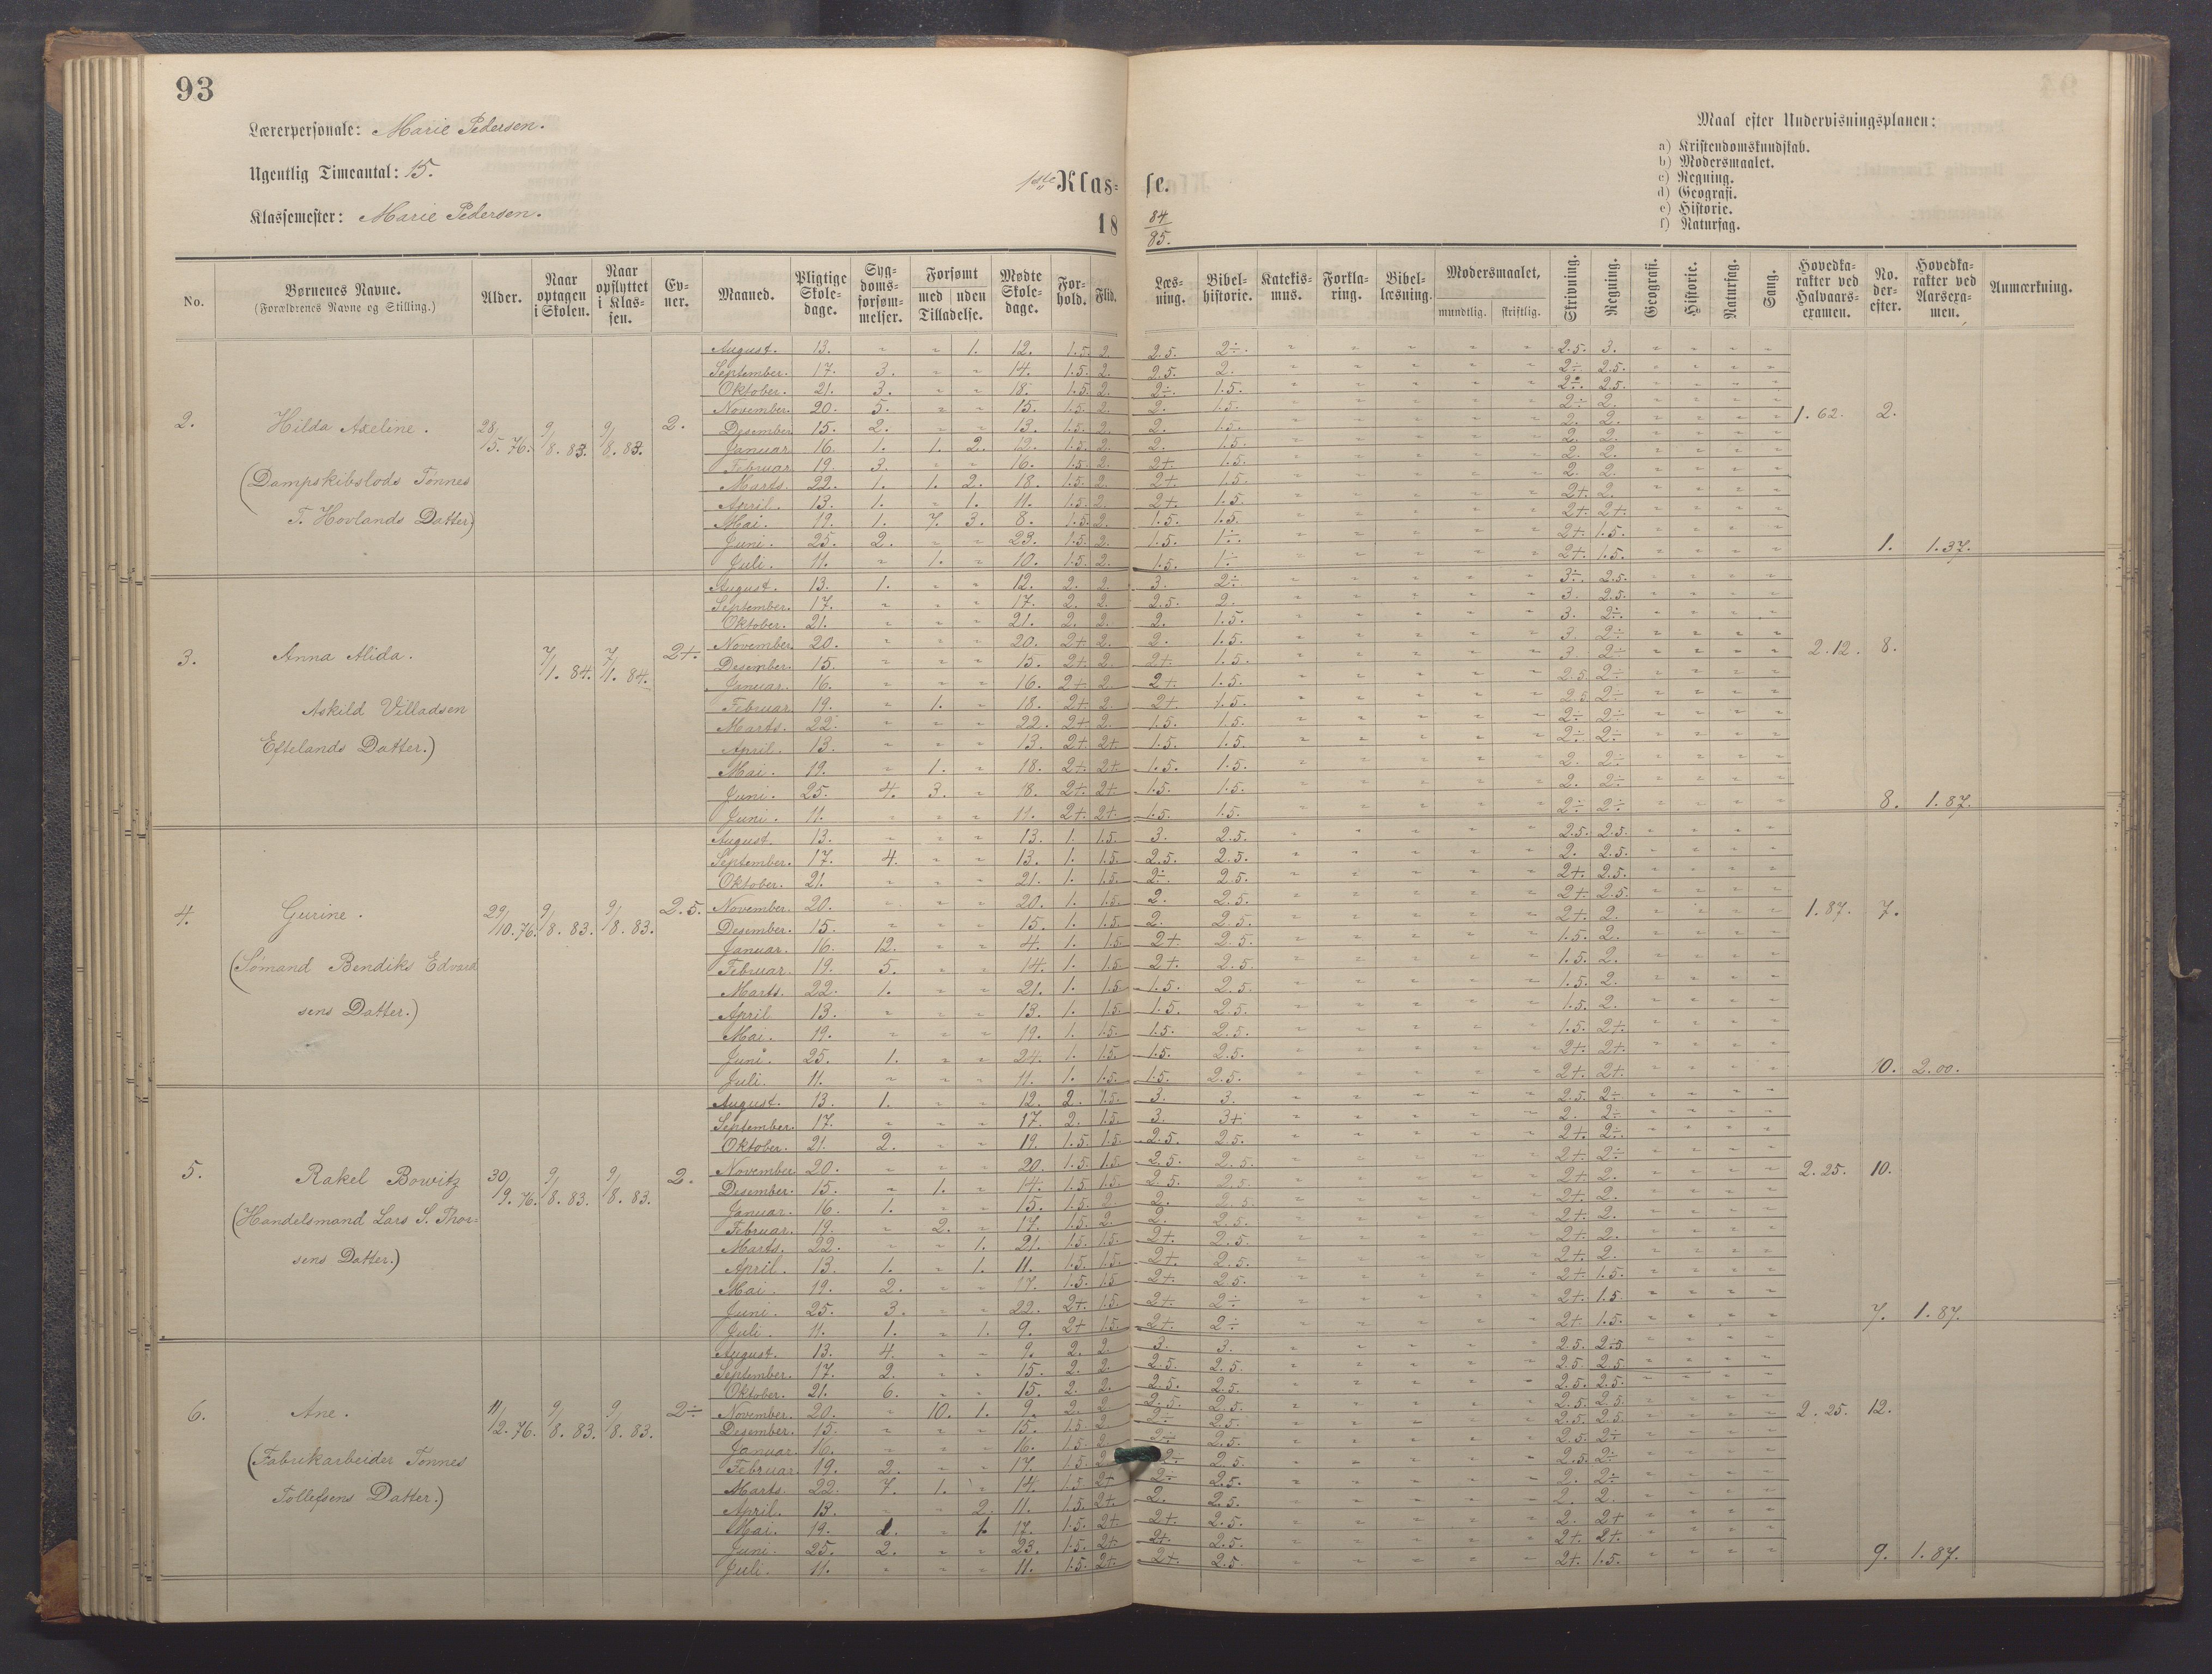 93
Lærerpersonale: Marie Pedersen.
Ugentlig Timeantal: 15.
Klassemester: Marie Pedersen.
1ste Klasse.
18 84/85.
Maal efter Undervisningsplanen:
a) Kristendomskundskab.
b) Modersmaalet.
c) Regning.
d) Geografi.
e) Historie.
f) Naturfag.
No. Børnenes Navne. (Forældrenes Navne og Stilling.) Alder. Naar optagen i Skolen. Naar opflyttet i Klassen. Evner. Maaned. Pligtige Skoledage. Sygdomsforsømmelser. Forsømt med uden Tilladelse. Mødte Skoledage. Forhold. Flid. Læsning. Bibelhistorie. Katekismus. Forklaring. Bibellæsning. Modersmaalet, mundtlig. skriftlig. Skrivning. Regning. Geografi. Historie. Naturfag. Sang. Hovedkarakter ved Halvaarsexamen. No. derefter. Hovedkarakter ved Aarsexamen. Anmærkning.
2. Hilda Axeline. 28/5. 76. 9/8. 83. 9/8. 83. 2. 1.62. 2.
(Dampskibslods Tønnes
T. Hovlands Datter)
August. 13. " " 1. 12. 1.5. 2. 2.5. 2÷. 2.5. 3.
September. 17. 3. " " 14. 1.5. 2. 2.5. 2. 2÷ 2.5.
Oktober. 21. 3. " " 18. 1.5. 2. 2÷. 1.5. 2÷. 2.5.
November. 20. 5. " " 15. 1.5. 2. 2. 1.5. 2÷ 2.
Desember. 15. 2. " " 13. 1.5. 2. 2. 1.5. 2. 2.
Januar. 16. 1. 1. 2. 12. 1.5. 2. 2. 1.5. 2. 2.
Februar. 19. 3. " " 16. 1.5. 2. 2+ 1.5. 2. 2.
Marts. 22. 1. 1. 2. 18. 1.5. 2. 2+ 1.5. 2. 2.
April. 13. 1. " 1. 11. 1.5. 2. 2+ 1.5. 2+. 2.
Mai. 19. 1. 7. 3. 8. 1.5. 2. 1.5. 1.5. 2+ 2+.
Juni. 25. 2. " " 23. 1.5. 2. 1.5. 1÷. 2+ 1.5.
Juli. 11. " 1. " 10. 1.5. 2. 1.5. 1÷ 2+. 1.5. 1. 1.37.
3. Anna Alida. 7/1. 84. 7/1. 84. 2+. 2.12. 8.
Askild Villadsen
Eftelands Datter.)
August. 13. 1. " " 12. 2. 2. 3. 2÷ 3÷. 2.5.
September. 17. " " " 17. 2. 2. 2.5. 2. 3. 2.5.
Oktober. 21. " " " 21. 2. 2. 2. 1.5. 3. 2÷.
November. 20. " " " 20. 2+ 2. 2. 1.5. 3. 2÷
Desember. 15. " " " 15. 2+ 2. 2+ 1.5. 3. 2÷
Januar. 16. " " " 16. 2+ 2. 2+. 1.5. 2.5 2÷
Februar. 19. " 1. " 18. 2+ 2. 2+ 1.5. 2.5 2÷
Marts. 22. " " " 22. 2+ 2. 1.5. 1.5. 2÷ 2÷
April. 13. " " " 13. 2+ 2+ 1.5. 1.5. 2÷. 2÷.
Mai. 19. " 1. " 18. 2+. 2+ 1.5. 1.5. 2. 2÷
Juni. 25. 4. 3. " 18. 2+. 2+ 1.5. 1.5. 2. 2÷
Juni. 11. " " " 11. 2+. 2+. 1.5. 1.5. 2÷ 2÷ 8. 1.87.
4. Gurine. 29/10. 76. 9/8. 83. 9/8. 83. 2.5. 1.87. 7.
(Sømand Bendiks Edvard
sens Datter.)
August. 13. " " " 13. 1. 1.5. 3. 2.5. 2.5. 2.5.
September. 17. 4. " " 13. 1. 1.5. 2.5. 2.5. 2. 2.5.
Oktober. 21. " " " 21. 1. 1.5. 2÷. 2.5. 2+. 2.5.
November. 20. " " " 20. 1. 1.5. 2. 2.5. 2+ 2.5.
Desember. 15. " " " 15. 1. 1.5. 2. 2.5. 2+. 2.
Januar. 16. 12. " " 4. 1. 1.5. 2+. 2.5. 1.5. 2.
Februar. 19. 5. " " 14. 1. 1.5. 2+. 2.5. 1.5. 2.
Marts. 22. 1. " " 21. 1. 1.5 1.5. 2.5. 1.5. 2.
April 13. " " " 13. 1. 1.5. 1.5. 2.5. 1.5. 2.
Mai. 19. " " " 19. 1. 1.5. 1.5. 2.5. 1.5. 2+.
Juni. 25. 1. " " 24. 1. 1.5. 1.5. 2.5. 2+. 2+.
Juli. 11. " " " 11. 1. 1.5. 1.5. 2.5. 2+. 2+. 10. 2.00.
5. Rakel Bowitz 30/9. 76. 9/8. 83. 9/8. 83. 2. 2.25. 10.
(Handelsmand Lars S. Thor-
sens Datter.)
August. 13. 1. " " 12. 2. 1.5. 3. 3. 2.5. 2÷
September. 17. " " " 17. 2. 1.5. 3. 3+ 2. 2÷
Oktober. 21. 2. " " 19. 1.5. 1.5. 2.5. 2.5. 2+. 2÷.
November. 20. " " " 20. 1.5. 1.5. 2.5. 2.5. 2+. 2÷
Desember. 15. " 1. " 14. 1.5 1.5. 2.5. 2.5. 2+ 2.
Januar. 16. 1. " " 15. 1.5. 2. 2. 2.5. 2+. 2.
Februar. 19. " 2. " 17. 1.5. 2. 2. 2.5. 2+. 2.
Marts. 22. " " 1. 21. 1.5. 1.5. 2+. 2.5. 2+. 2.
April. 13. 1. " 1. 11. 1.5. 1.5. 2+. 2.5. 2+. 2.
Mai. 19. 2. " " 17. 1.5. 1.5 2+. 2.5. 2+. 1.5.
Juni. 25. 3. " " 22. 2+. 1.5. 2+. 2÷ 2+. 1.5
Juli. 11. 1. " 1. 9. 2+ 1.5. 2+. 2÷ 2+ 1.5. 7. 1.87.
6. Ane. 11/12. 76. 9/8. 83. 9/8. 83. 2÷ 2.25. 12.
(Fabrikarbeider Tønnes
Tollefsens Datter.)
August. 13. 4. " " 9. 2. 2. 3. 3. 2.5. 2.5
September. 17. 2. " " 15. 2. 2. 2.5. 2.5. 2.5. 2.5.
Oktober. 21. 6. " " 15. 2. 2. 2.5. 2.5. 2.5. 2.5.
November. 20. " 10. 1. 9. 2. 2 2.5. 2.5. 2.5. 2.5.
Desember. 15. " " " 15. 1.5. 2 2÷ 2.5. 2.5. 2.5.
Januar. 16. " " " 16. 1.5. 2 2÷ 2.5. 2.5. 2÷
Februar. 19. 2. " " 17. 1.5. 2 2÷ 2.5. 2.5. 2÷
Marts. 22. 7. 1. " 14. 1.5 2+ 2÷ 2.5. 2. 2÷
April. 13. " " 2. 11. 1.5. 2+. 2. 2.5. 2. 2.
Mai. 19. 1. " 1. 17. 1.5. 2+ 2+ 2.5. 2. 2+
Juni. 25. 2. " " 23. 1.5. 2+ 2+. 2.5. 2+ 2+.
Juli. 11. " " " 11. 1.5 2+. 2+. 2.5. 2+. 1.5. 9. 1.87.